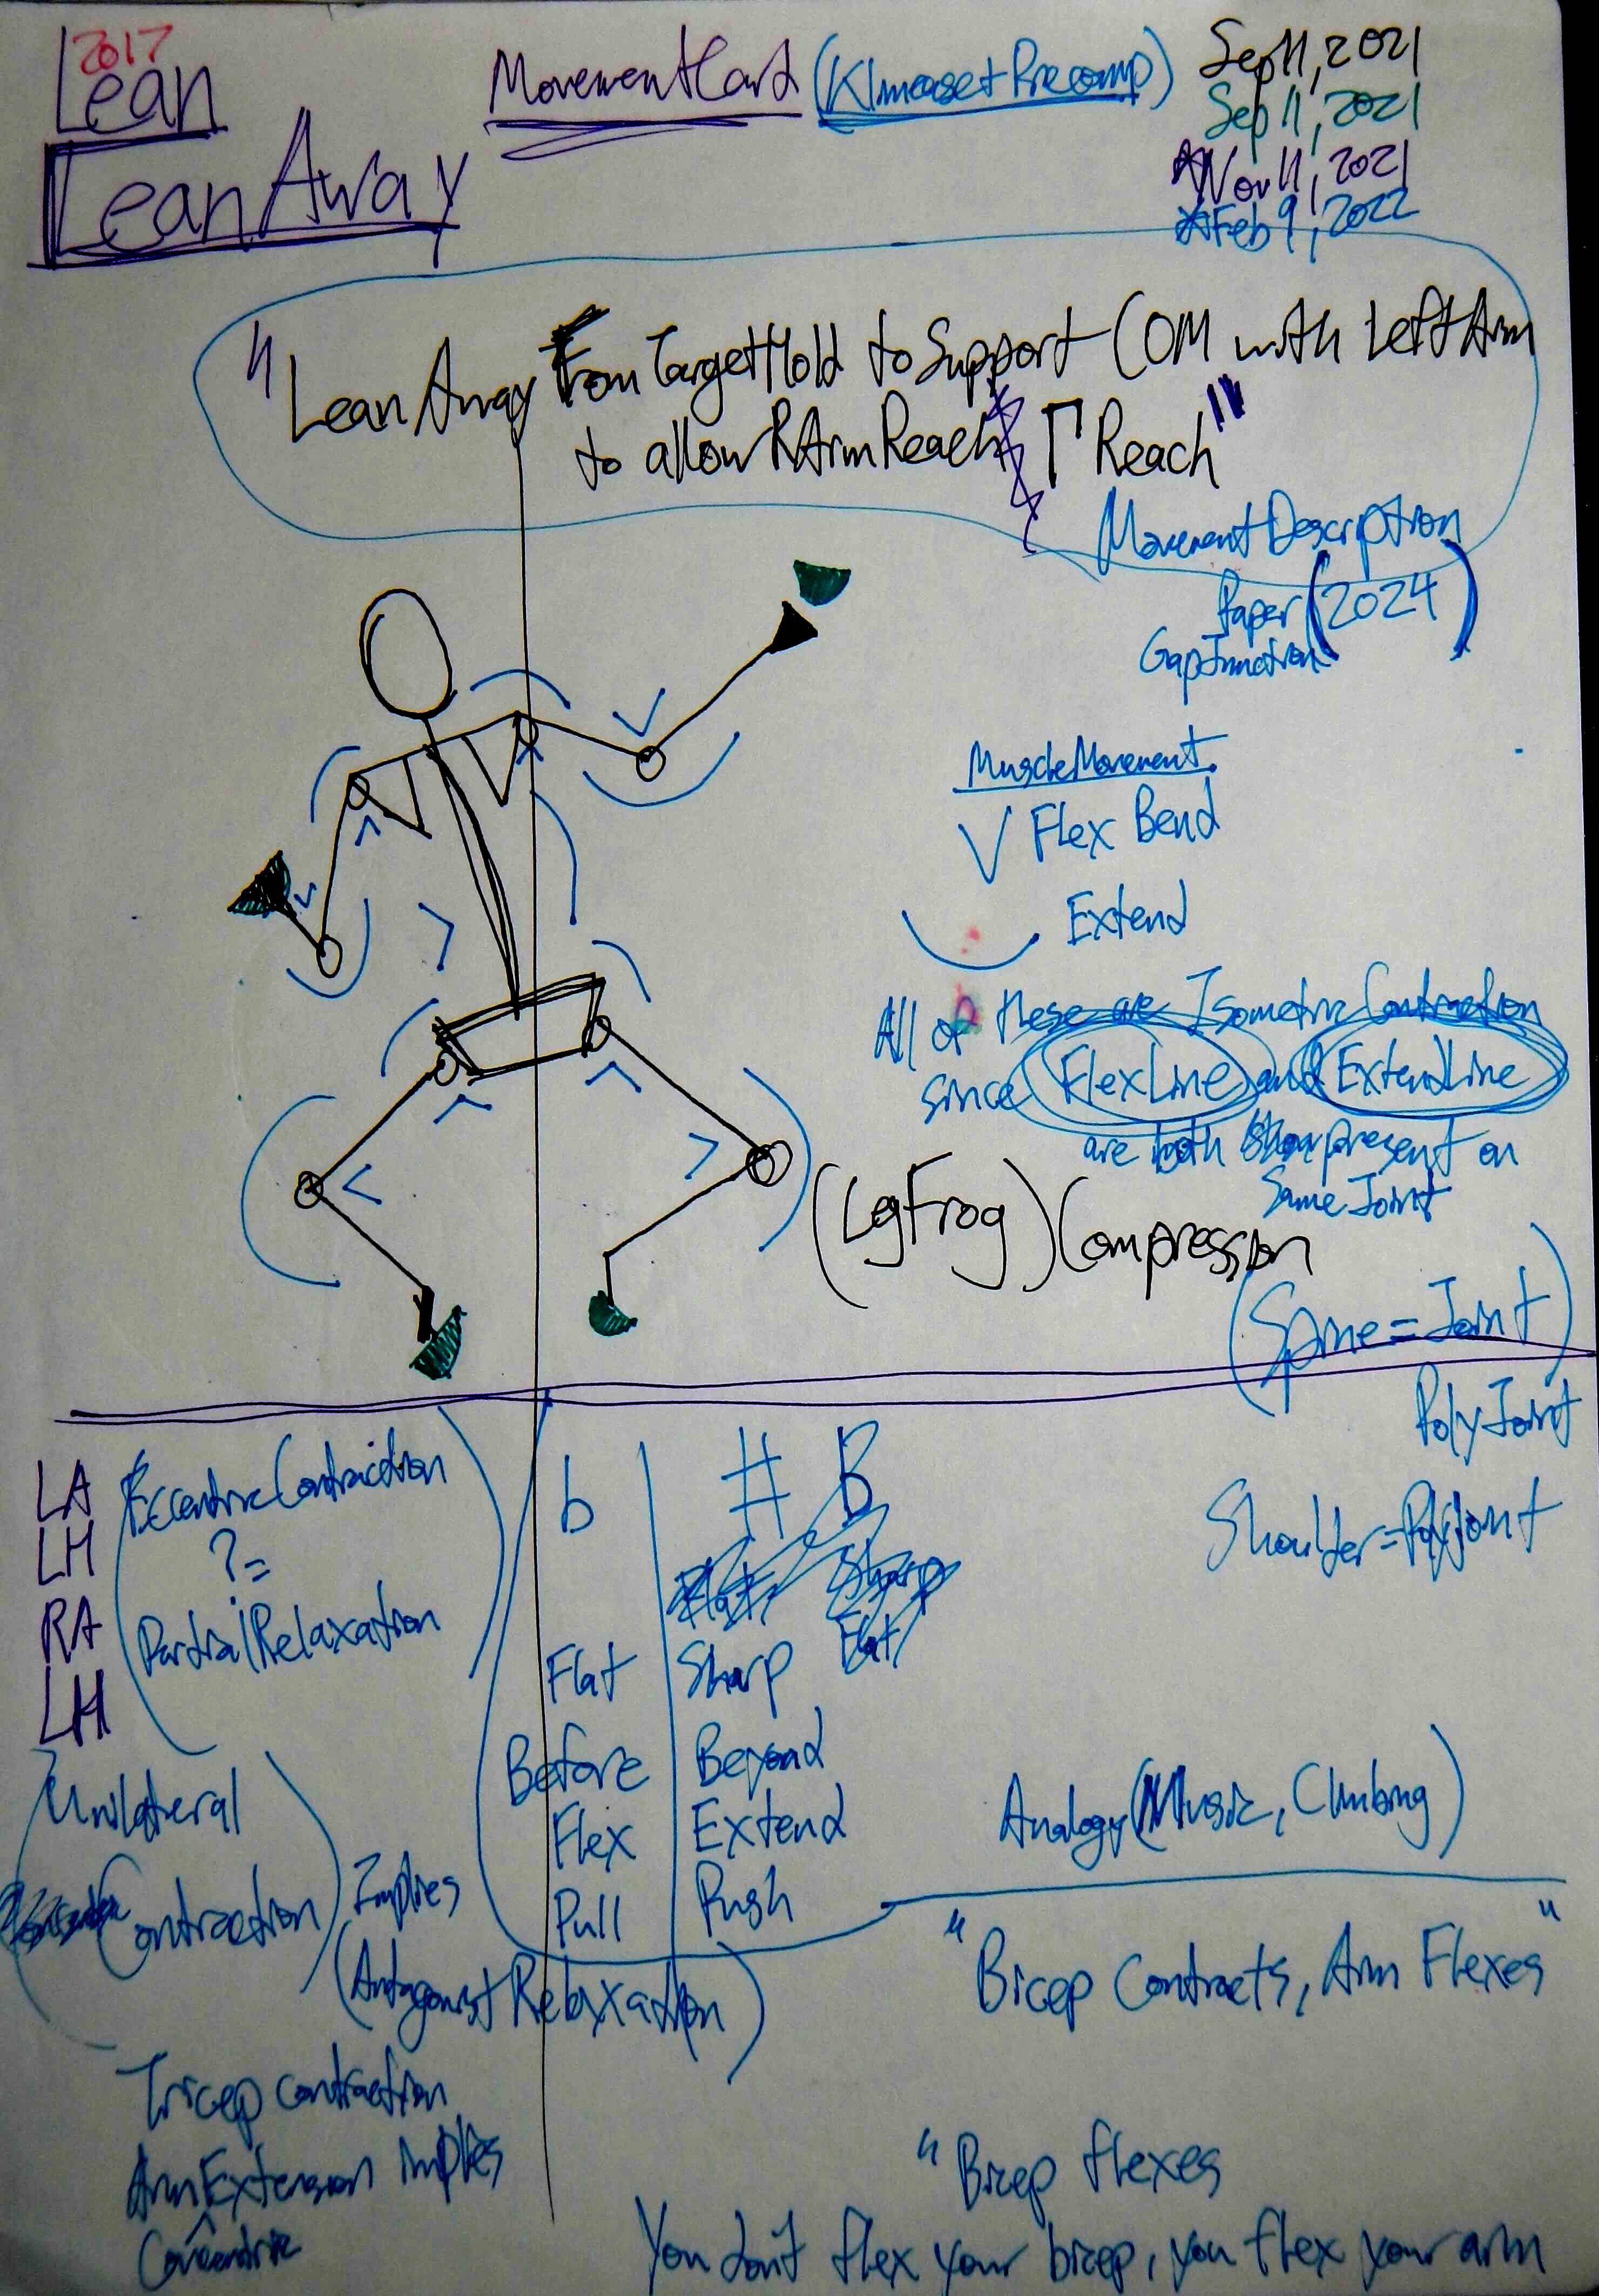 2017
Lean
LeanAway
MovementCard (Klmeaset Precomp)
Sep 11, 2021
Sep 11, 2021
Nov 11, 2021
Feb 9, 2022
"LeanAway From TargetHold to Support COM with Left Arm
to allow RArmReach Reach"
MovementDescription
Paper (2024)
GapJunction
MuscleMovement.
Flex Bend
Extend
All of these are Isometric Contraction
since FlexLine and ExtendLine
are both present on
Same Joint
(LgFrog) Compression
(Spine = Joint)
PolyJoint
Shoulder = PolyJoint
LA
LH
RA
LH
Eccentric Contraction
?=
Partial Relaxation
b # B
Flat Sharp Flat
Before Beyond
Flex Extend
Pull Push
Analogy (Music, Climbing)
Unilateral
Contraction Implies
(Antagonist Relaxation)
"Bicep Contracts, Arm Flexes"
Tricep contraction
ArmExtension implies
Concentric
"Bicep flexes
You don't flex your bicep, you flex your arm